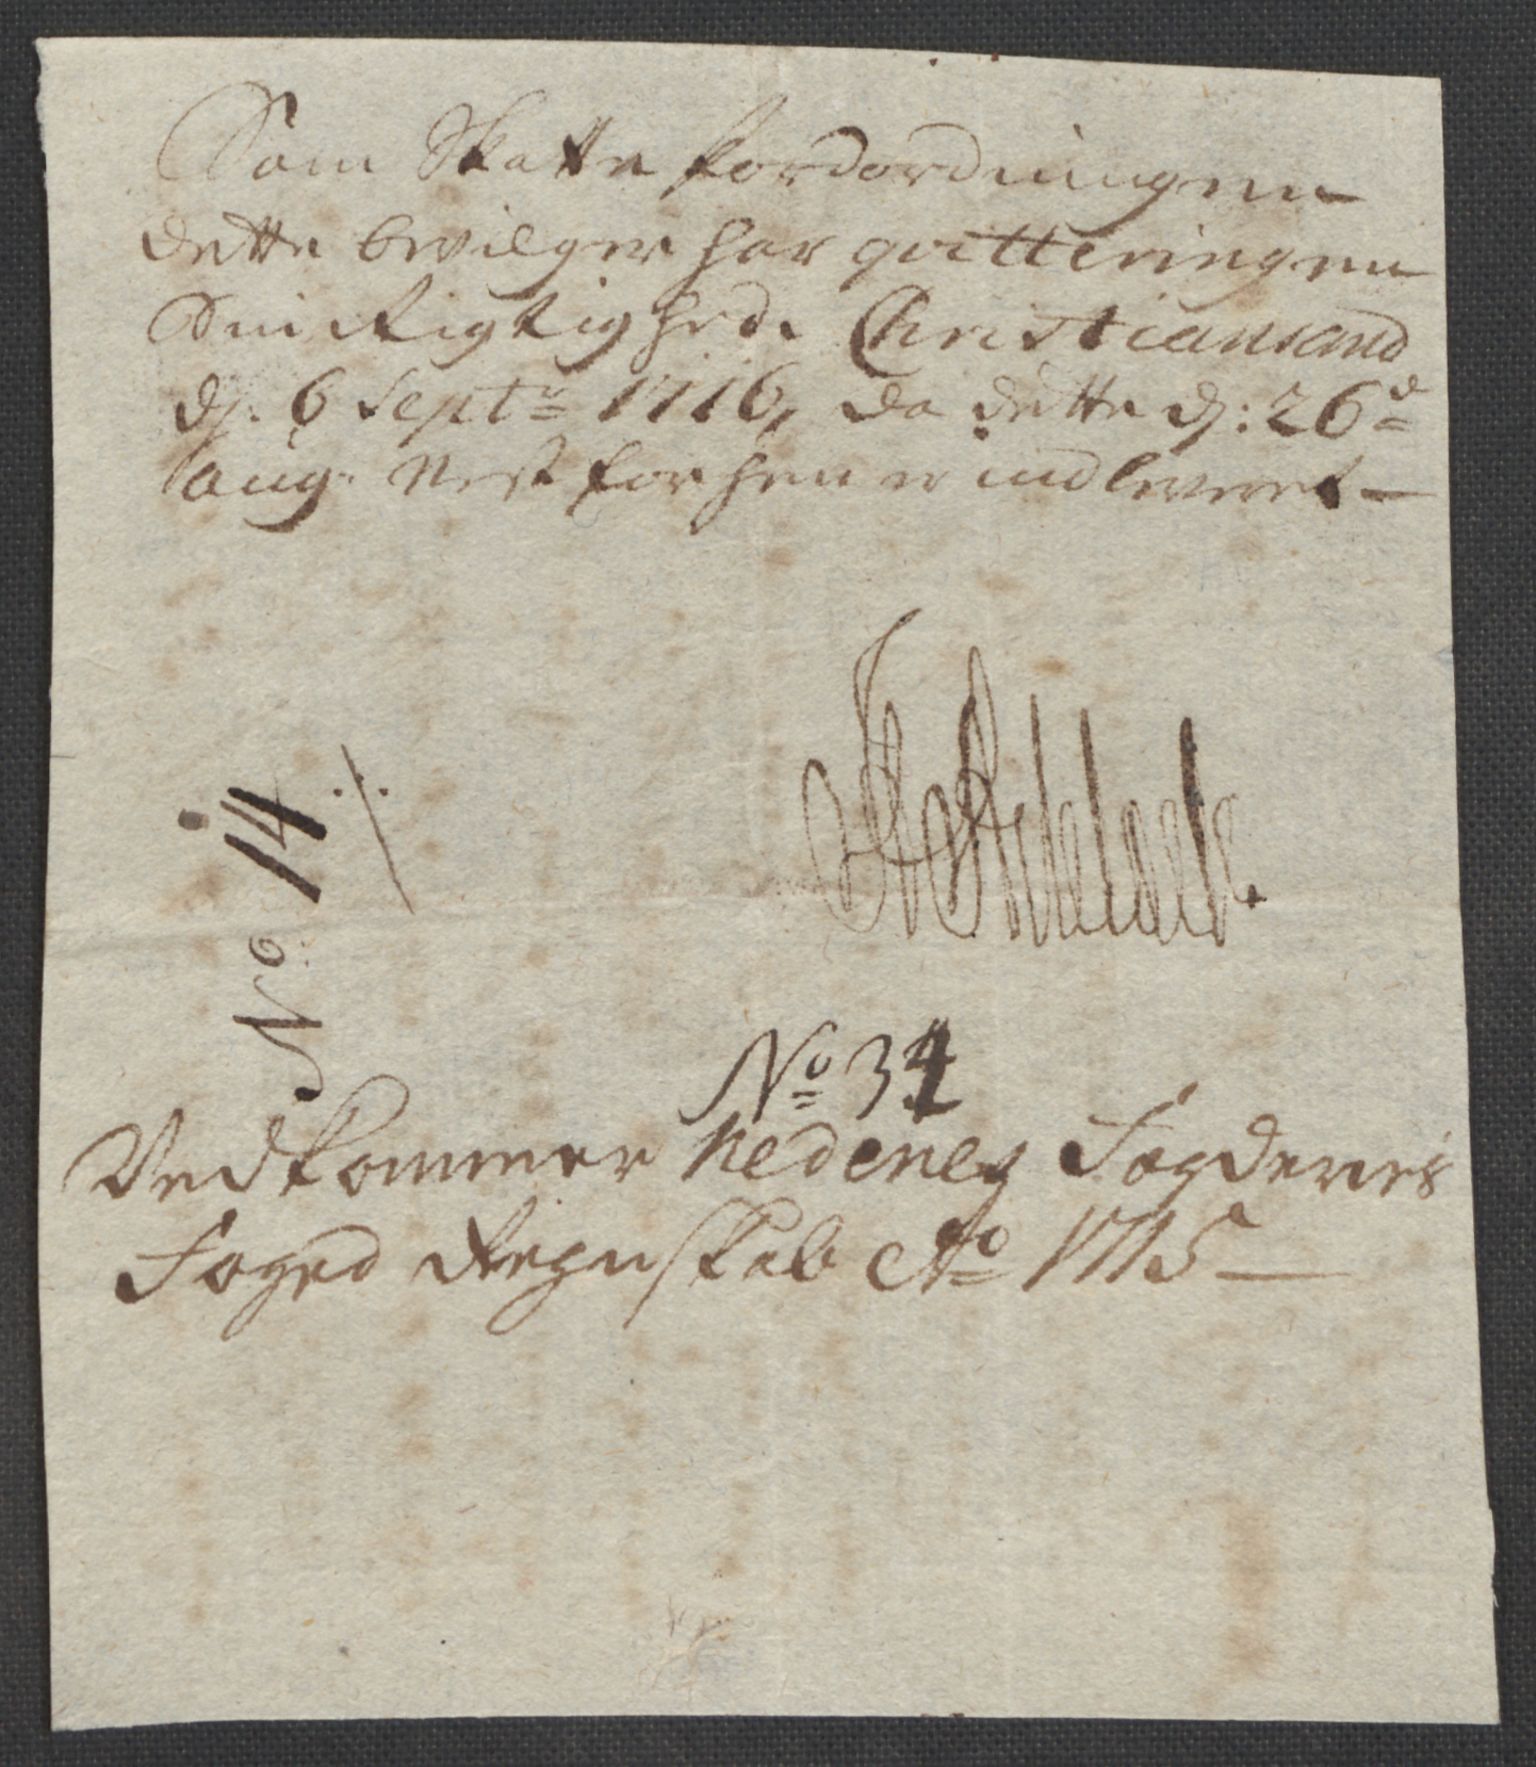 Som Skatte forordningen
dette bevilger har qvitteringen
Sin Rigtighed. Christiansand
dj. 6 Septr 1716, da dette dj: 26de
aug. nest forhen er indleveret —
No 14 ./.
No 34
Vedkommer Nedenes Fogderies
Foged Regnskab Ao 1715 —